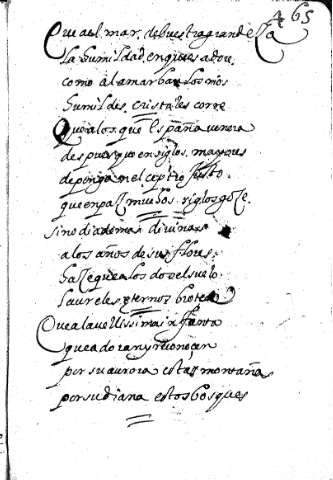 465
Que al mar de buestra grandeza
la humildad, en quien adoro.
como al amar ban los rios
humildes, cristales corre
Que a los que España venera
despues que en siglos mayores
deponga en el ceptro justo
que en paz muchos siglos goze.
sino diademas divinas
a los años de sus flores.
haze que a los dos el suelo
laureles eternos brote
Que a la vellissima infanta
que adoran y reconoçen
por su aurora estas montañas
por su diana estos bosques